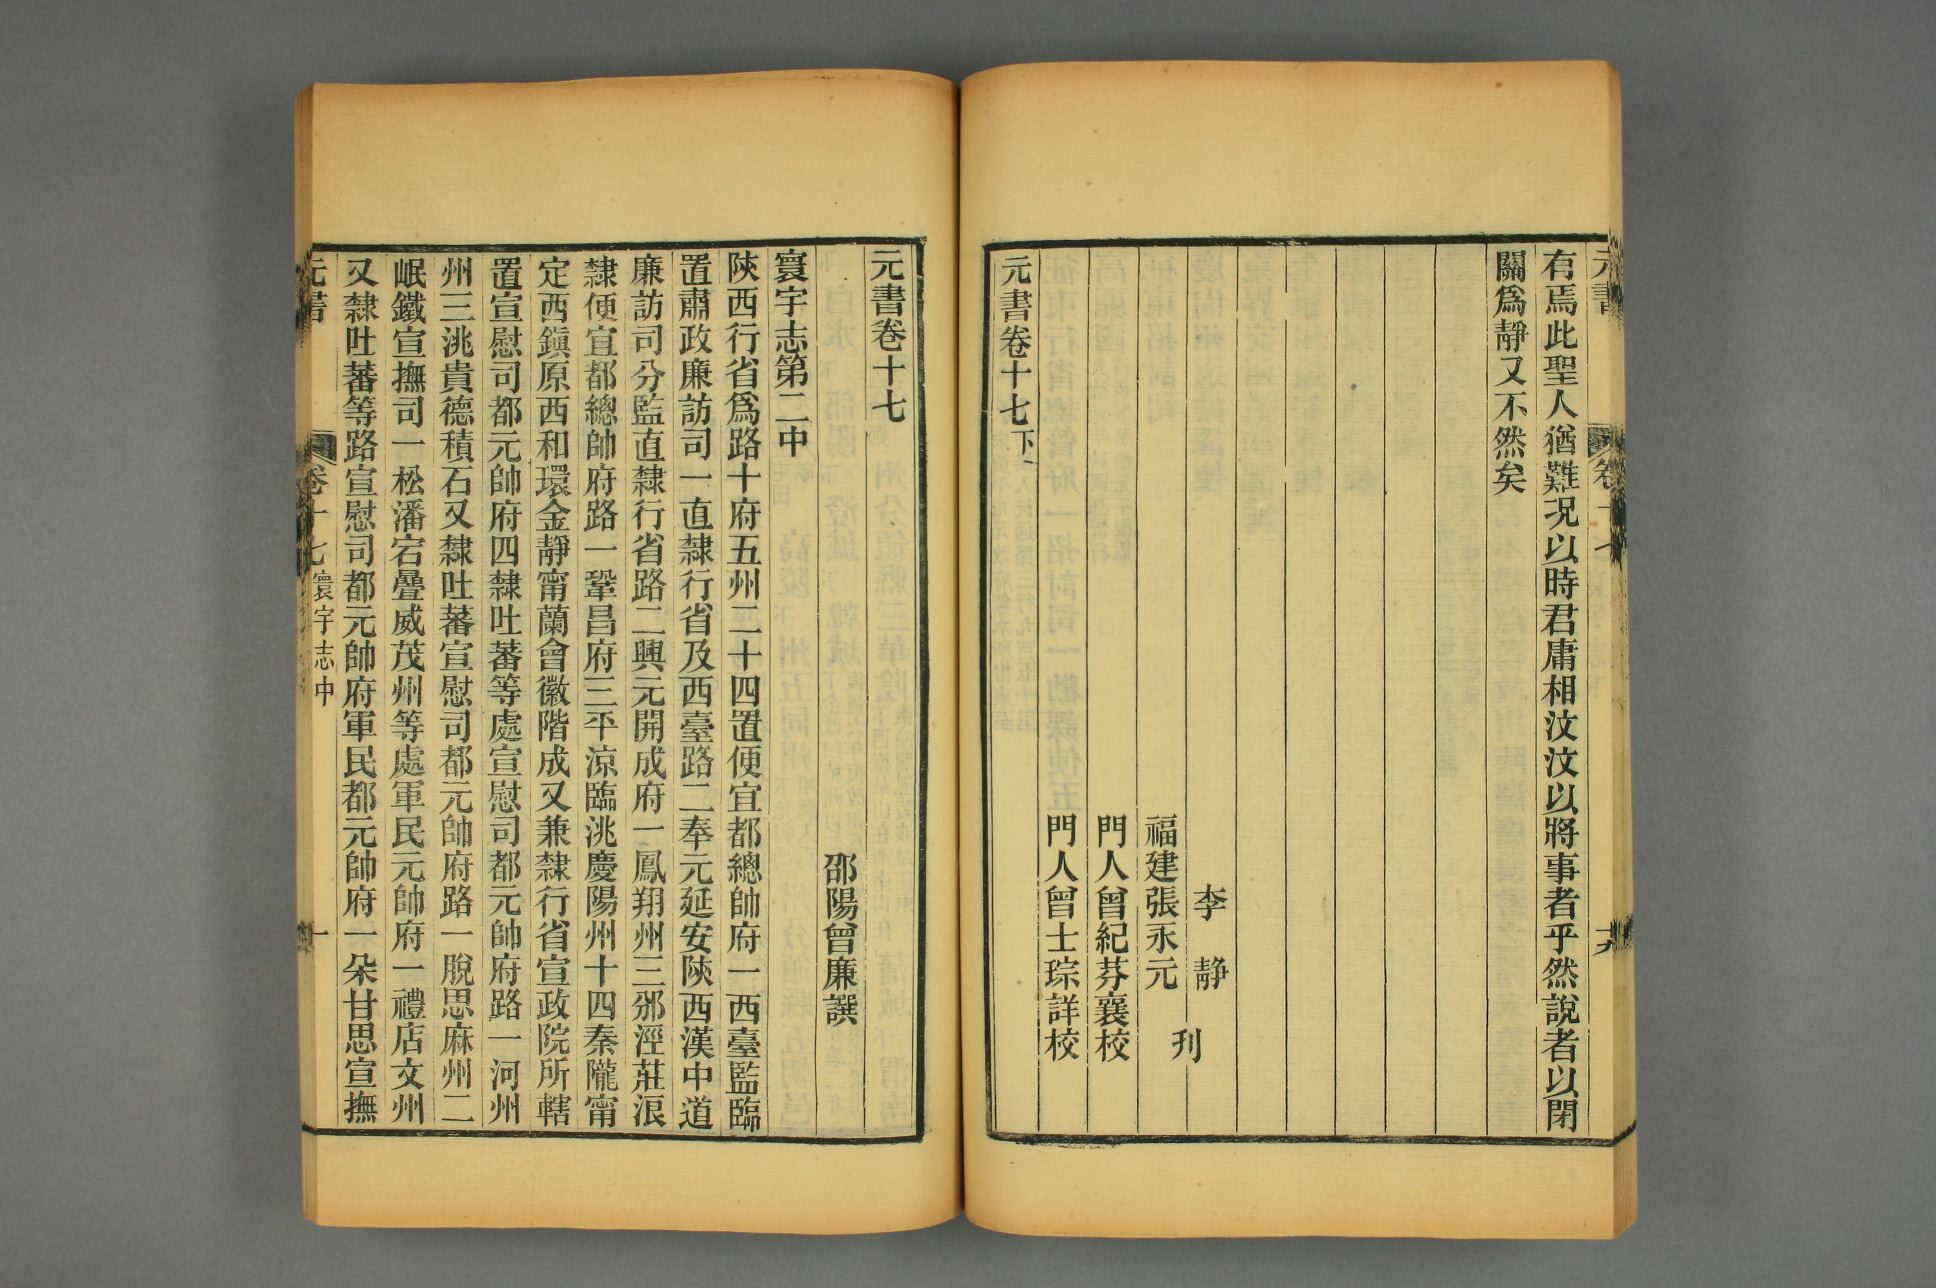 有焉此聖人猶難況以時君庸相汶汶以將事者乎然說者以閉
關爲靜又不然矣
李靜
福建張永元
刋
門人曾紀芬襄校
門人曾士琮詳校
元書卷十七下
元書卷十七
邵陽曾廉譔
寰宇志第二中
陝西行省爲路十府五州二十四置便宜都總帥府一西臺監臨
置肅政廉訪司一直隸行省及西臺路二奉元延安陝西漢中道
廉訪司分監直隸行省路二興元開成府一鳳翔州三邠涇莊浪
隸便宜都總帥府路一鞏昌府三平涼臨洮慶陽州十四秦隴甯
定西鎭原西和環金靜甯蘭會徽階成又兼隸行省宣政院所轄
置宣慰司都元帥府四隸吐蕃等處宣慰司都元帥府路一河州
州三洮貴德積石又隸吐蕃宣慰司都元帥府路一脫思麻州二
岷鐵宣撫司一松潘宕疊威茂州等處軍民元帥府一禮店文州
又隸吐蕃等路宣慰司都元帥府軍民都元帥府一朵甘思宣撫
元書
卷十七寰宇志中
一